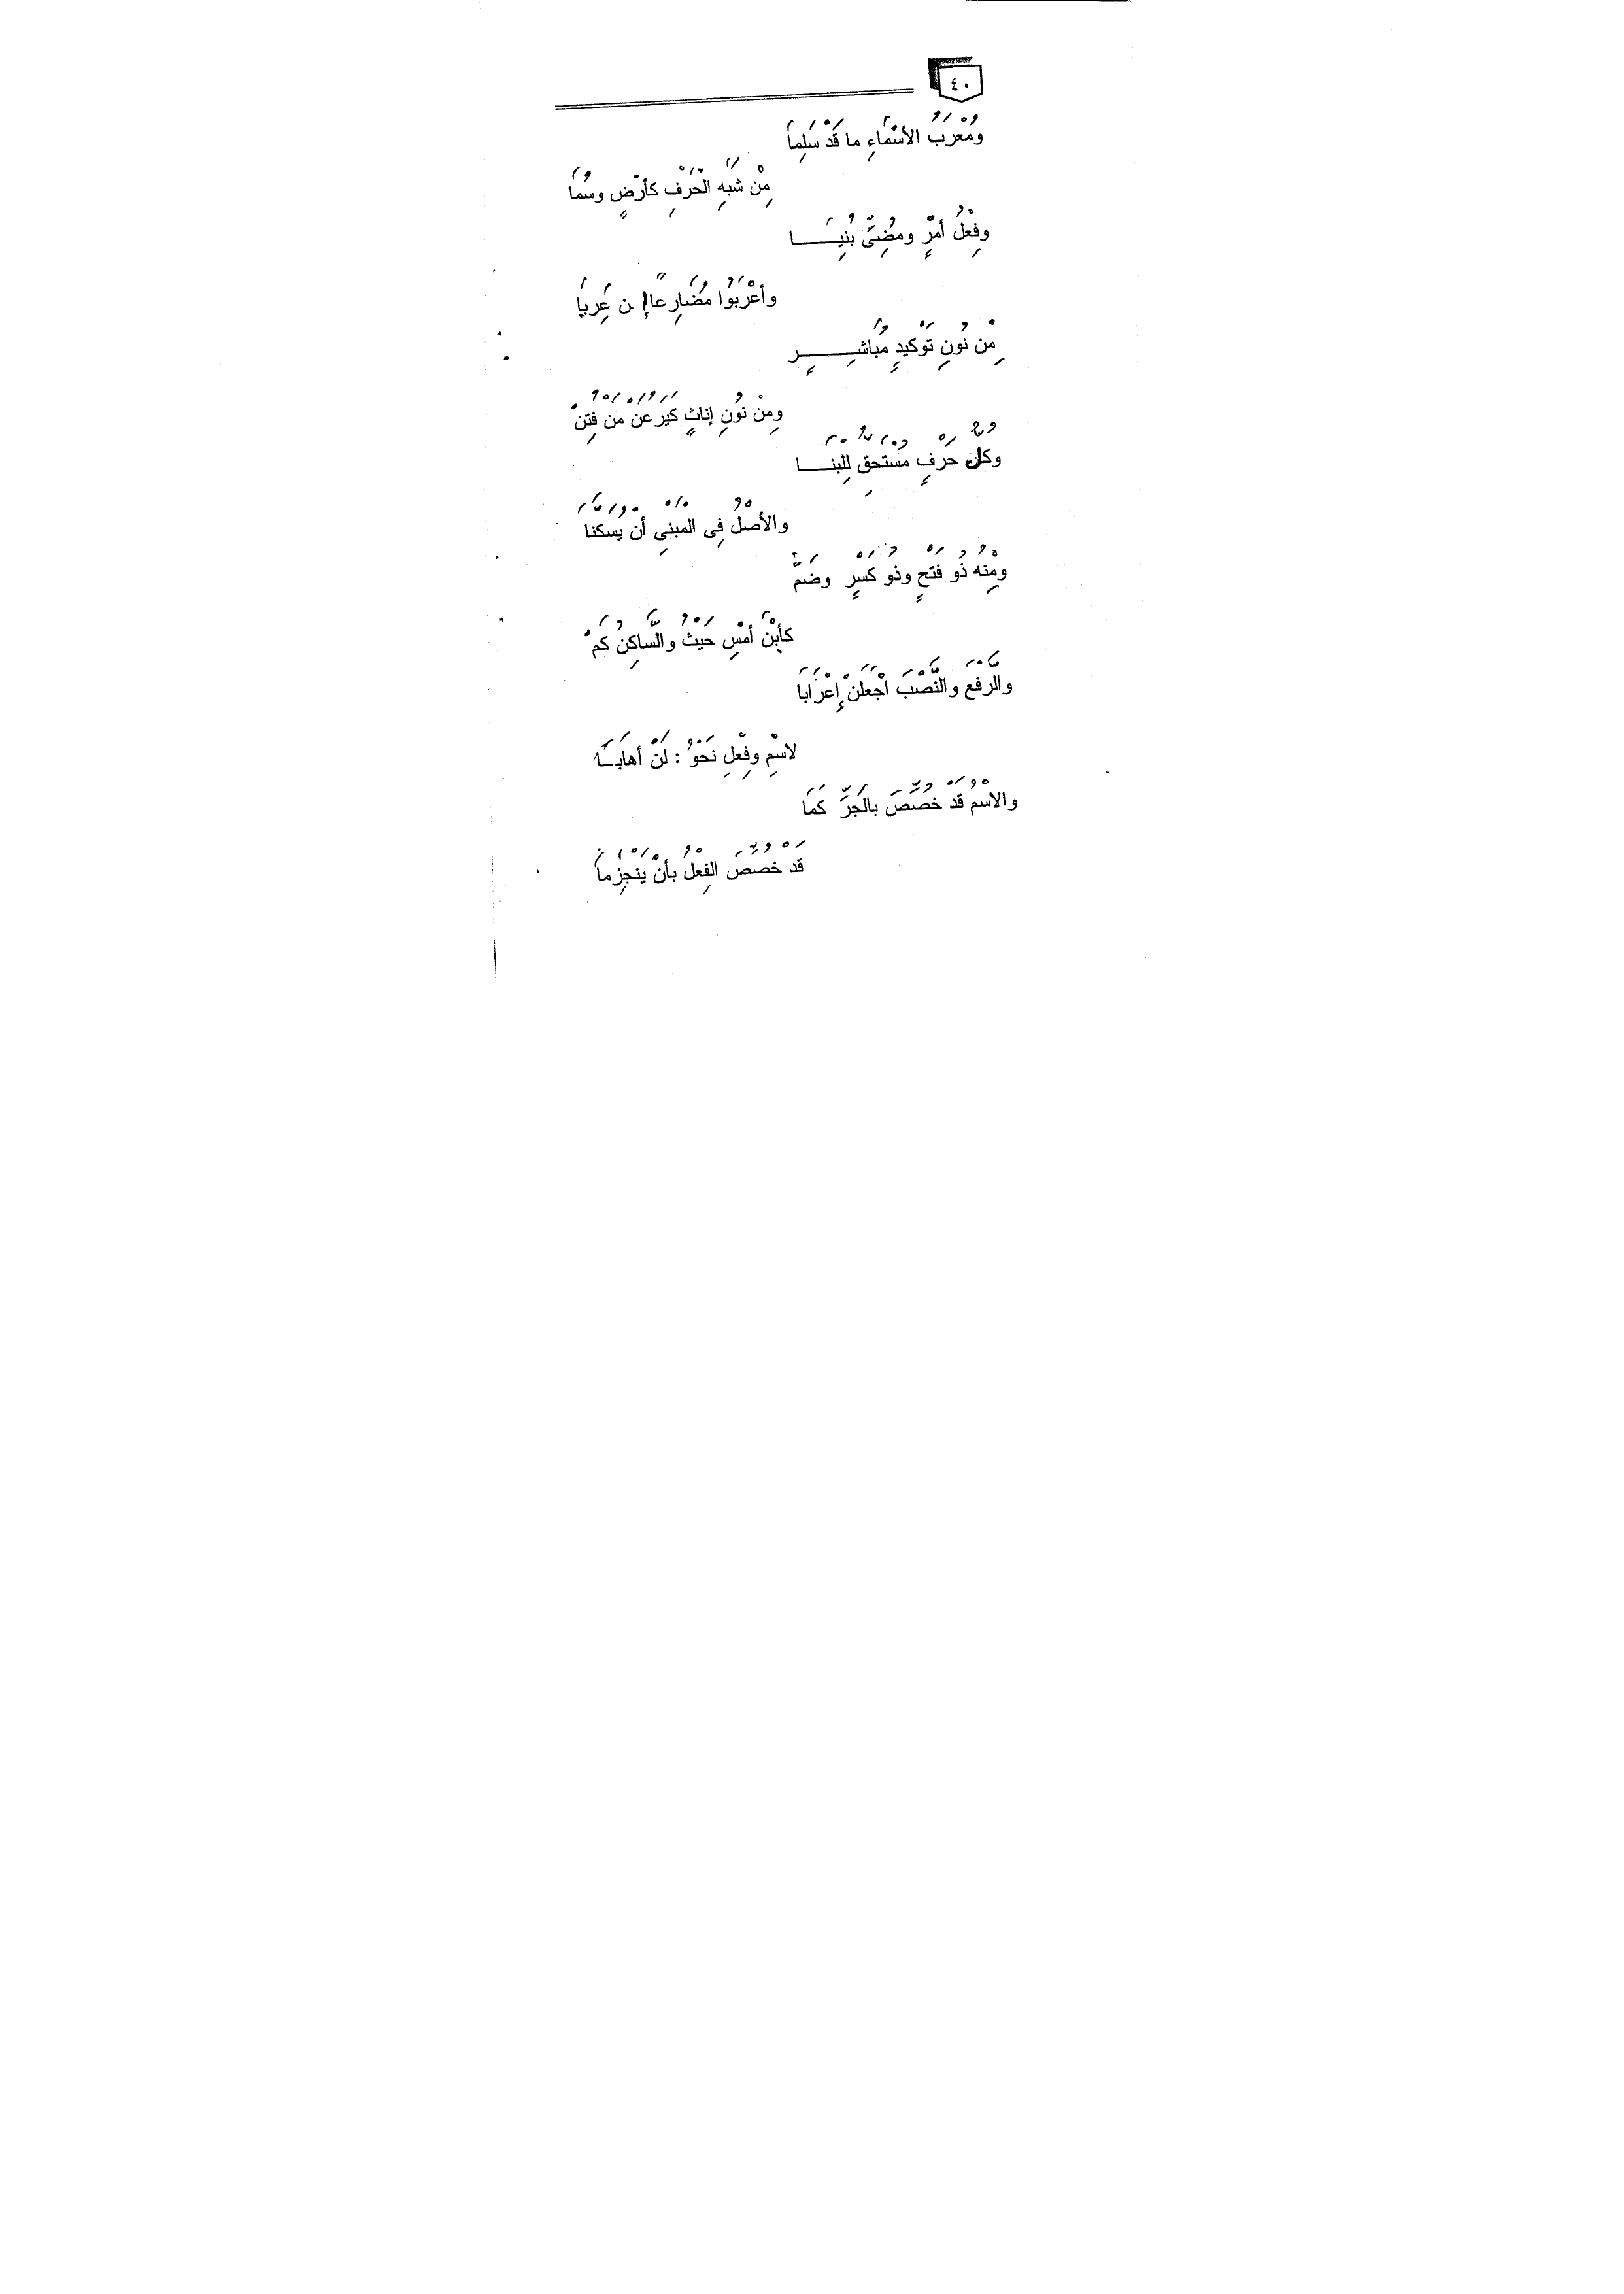 ٤٠
وَمُعْرَبُ الأَسْمَاءِ ما قَدْ سَلِمَا
مِنْ شَبَهِ الْحَرْفِ كَأَرْضٍ وسُمَا
وفِعْلُ أَمْرٍ ومُضِىٍّ بُنِيَـــا
وأَعْرَبُوا مُضَارِعًا إن عَرِيَا
مِنْ نُونِ تَوْكِيدٍ مُبَاشِـــرٍ
وَمِنْ نُونِ إنَاثٍ كَيَرُعْنَ مَنْ فُتِنْ
وكُلُّ حَرْفٍ مُسْتَحِقٌ لِلْبِنَـــا
والأصْلُ فِى الْمَبْنِىِ أَنْ يُسَكَّنَا
ومِنْهُ ذُو فَتْحٍ وذُو كَسْرٍ وضَمّْ
كَأَيْنَ أَمْسِ حَيْثُ والسَّاكِنُ كَمْ
والرَّفْعَ والنَّصْبَ اجْعَلَنْ إِعْرَابَا
لاسْمٍ وفِعْلٍ نَحْوُ : لَنْ أَهَابَــا
والاسْمُ قَدْ خُصِّصَ بالْجَرِّ كَمَا
قَدْ خُصِّصَ الفِعْلُ بأَنْ يَنْجَزِمَا